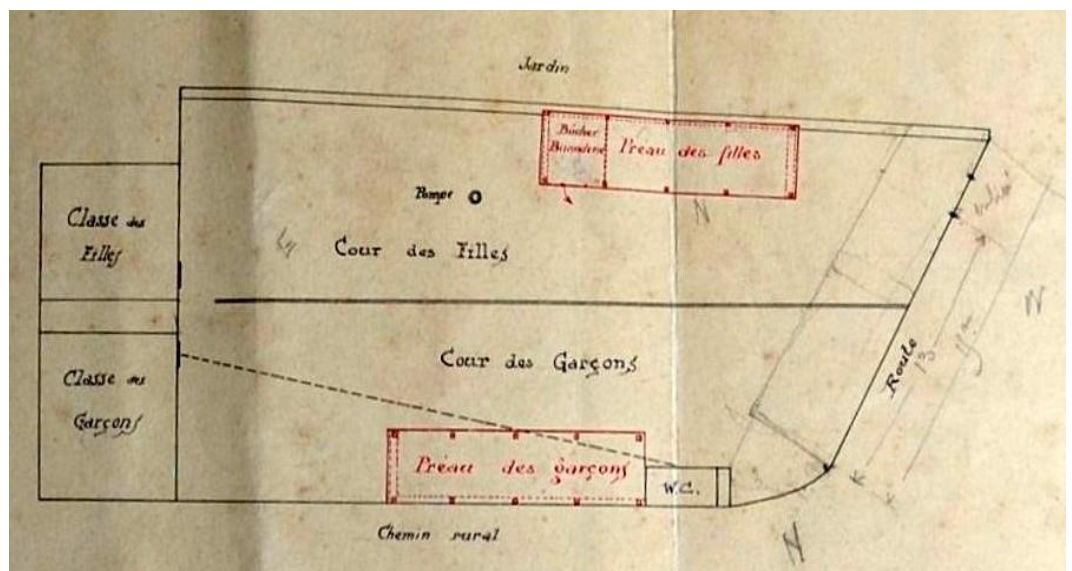 Jardin
Bûcher
Buanderie
Préau des filles
Pompe
Classe des
Filles
Cour des Filles
Cour des Garçons
Classe des
Garçons
Route
13
Préau des garçons
W.C.
Chemin rural
N
N
N